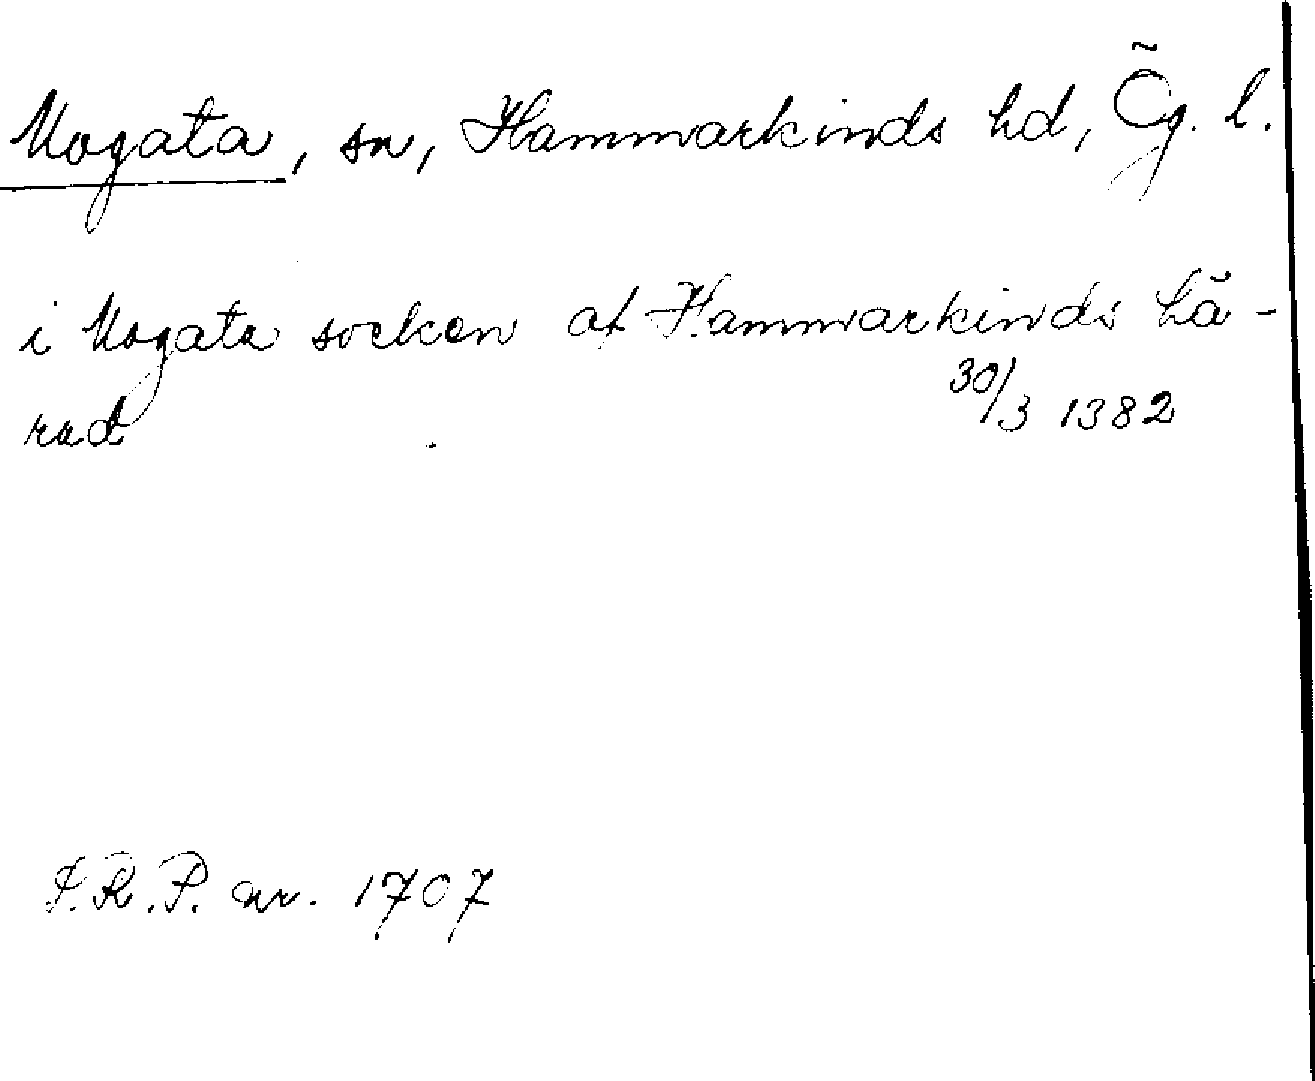 Mogata, sn, Hammarkinds hd, Ög. l.
i Mogata socken af Hammarkinds hä-
rad 30/3 1382
S.R.P. nr. 1707